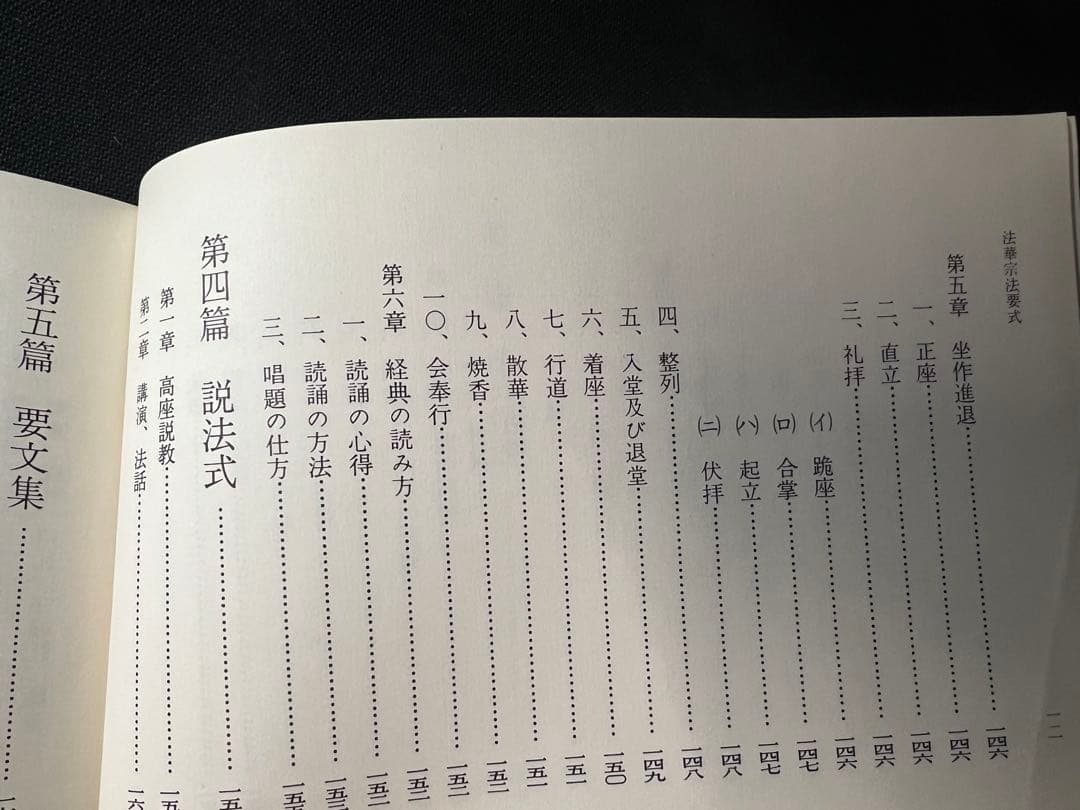 法華宗法要式
第五章　坐作進退……一四六
一、正座……一四六
二、直立……一四六
三、礼拝……一四六
(イ)　跪座……一四六
(ロ)　合掌……一四七
(ハ)　起立……一四七
(ニ)　伏拝……一四八
四、整列……一四八
五、入堂及び退堂……一四九
六、着座……一五〇
七、行道……一五一
八、散華……一五一
九、焼香……一五二
一〇、会奉行……一五二
第六章　経典の読み方……一五二
一、読誦の心得……一五二
二、読誦の方法……一五三
三、唱題の仕方……一五
第四篇　説法式……一五
第一章　高座説教……一五
第二章　講演、法話……一六
第五篇　要文集……